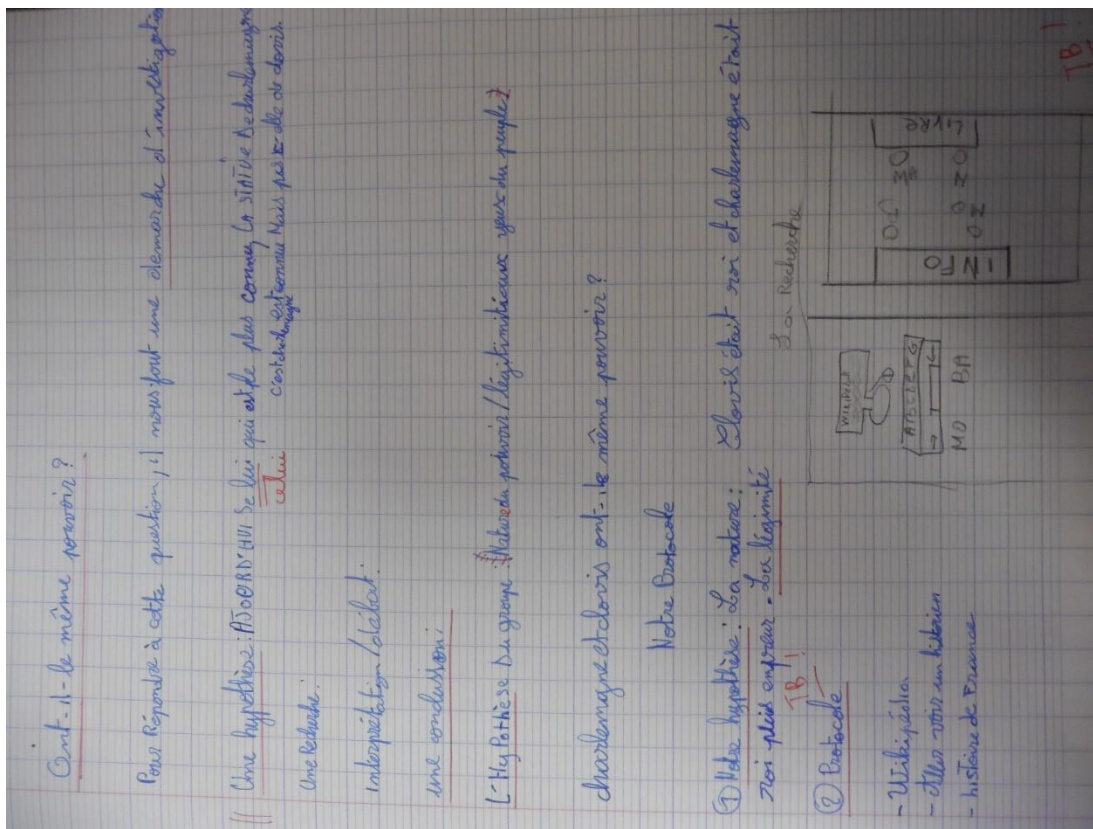 Ont-il-le même pouvoir?
Pour Répondre à cette question, il nous faut une démarche d'investigation
Une hypothèse: AJOURD'HUI Se lui qui est le plus connu, LA STATUE De charlemagne
celui
c'est charlemagne est connue Mais pas celle de clovis.
Une Recherche:
Interprétation/débat:
une conclusion:
L'HyPothèse Du groupe: (Nature du pouvoir/légitimité aux yeux du peuple)
charlemagne et clovis ont-ils même pouvoir?
Notre Protocole
① Notre hypothèse: La nature: Clovis était roi et charlemagne était
roi puis empreur. La légimité
TB!
② Protocole
- Wikipédia
- Aller voir un historien
- histoire de France
La Recherche
WIKIPEDIA
ABCDEFG
MO BA
INFO
LIVRE
TB!